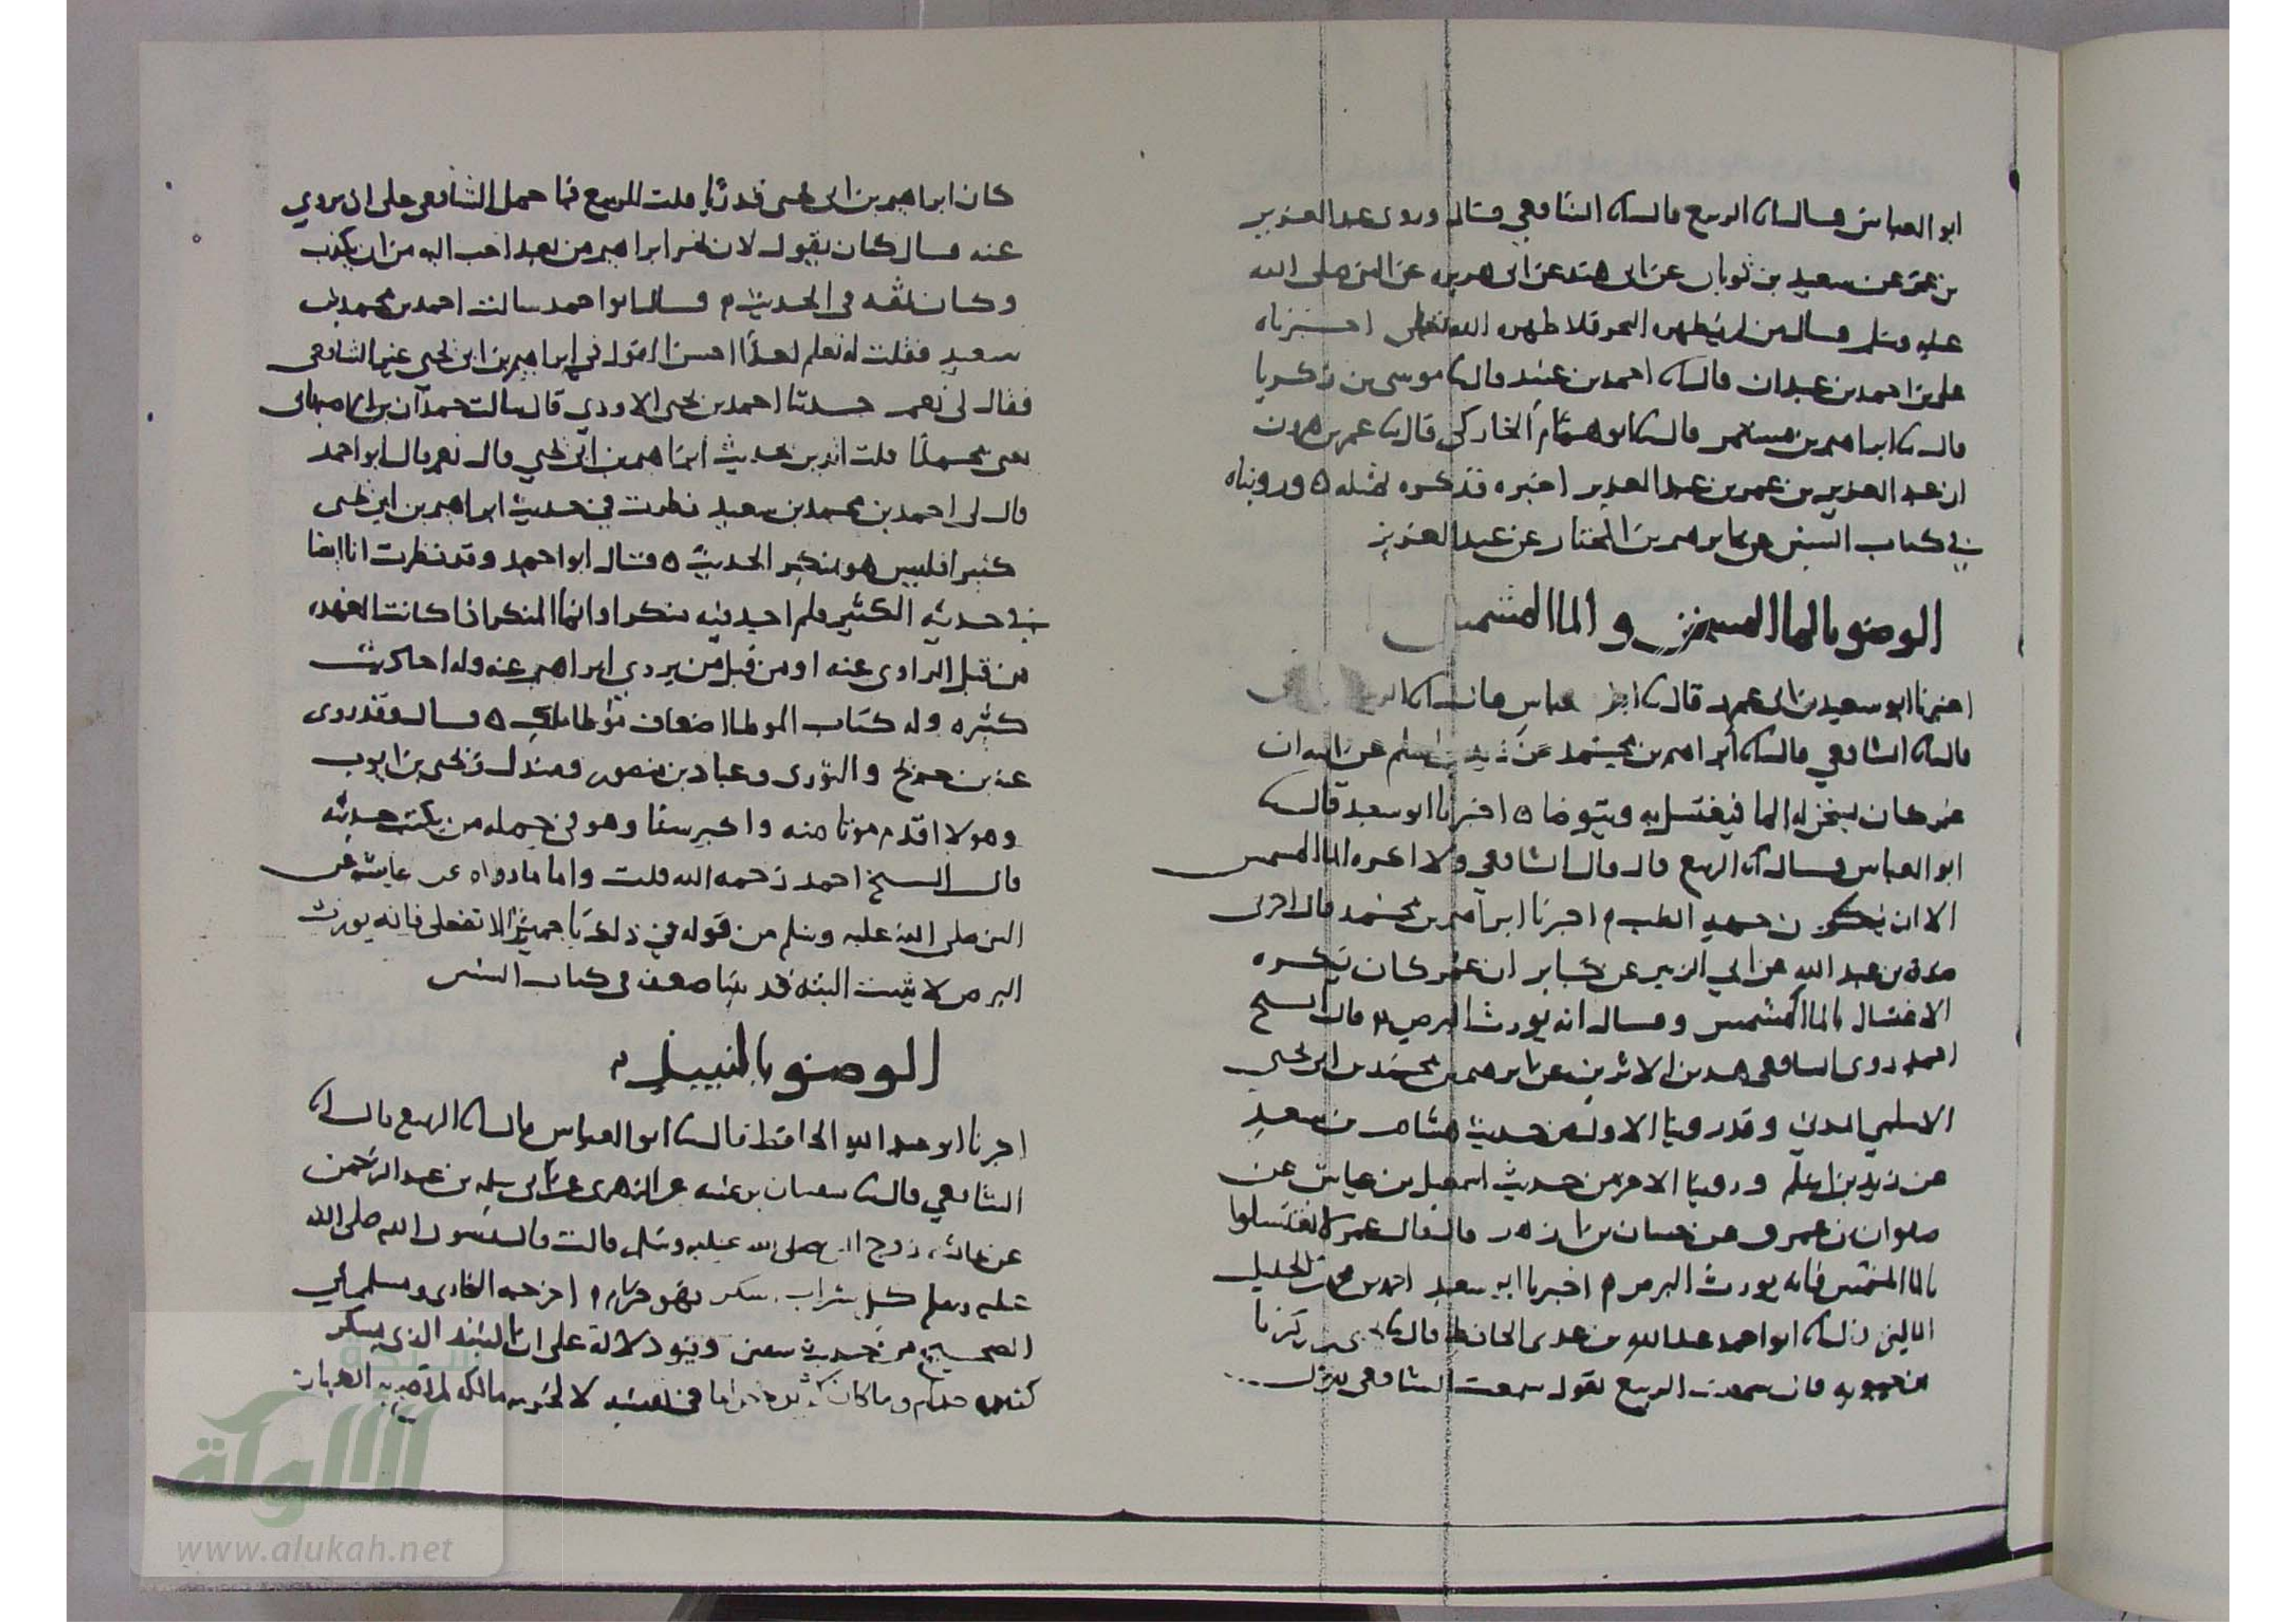 ابو العباس قال اں الربيع قال اں الشافعي قال وروى عبد العزيز
بن عمر عن سعيد بن ثوبان عن ابى هند عن ابى هريره عن النبى صلى الله
عليه وسلم قال من لم يطهره البحر فلا طهره الله تعالى اخبرناه
على بن احمد بن عبدان قال اں احمد بن عبيد قال ںا موسى بن زكريا
قال ںا ابراهيم بن مستمر قال ںا ابو همام الخاركى قال ںا عمر بن هرون
ان عبد العزيز بن عمر بن عبد العزيز اخبره فذكره بمثله ه ورويناه
في كتاب السنن عن ابرهيم بن المختار عن عبد العزيز
الوضو بالما المسخن و الما المشمس
اخبرنا ابو سعيد بن ابى عمرو قال ںا ابو عباس قال اں الربيع
قال اں الشافعي قال اں ابراهيم بن محمد عن زيد بن اسلم عن ابيه ان
عمر كان يسخن له الما فيغتسل به ويتوضا ه اخبرنا ابو سعيد قال ںا
ابو العباس قال اں الربيع قال قال الشافعي ولا اكره الما المشمس
الا ان يكون من جهه الطب م اخبرنا ابراهيم بن محمد قال اخبرنى
صدقه بن عبد الله عن ابي الزبير عن جابر ان عمر كان يكره
الاغتسال بالما المشمس وقال انه يورث البرص ه قال الشيخ
احمد روى الشافعى هذين الاثرين عن ابرهيم بن محمد بن ابى يحيى
الاسلمي المدني وقد روينا الاول من حديث هشام بن سعد
عن زيد بن اسلم وروينا الاخر من حديث اسمعيل بن عياش عن
صفوان بن عمرو عن حسان بن ازهر قال قال عمر لا تغتسلوا
بالما المشمس فانه يورث البرص م اخبرنا ابو سعيد احمد بن محمد بن الخليل
الماليني قال اں ابو احمد عبد الله بن عدى الحافظ قال ںا يحيى بن زكريا
بن حيويه قال سمعت الربيع يقول سمعت الشافعى يقول
كان ابراهيم بن ابى يحيى قدريا قلت للربيع فما حمل الشافعى على ان يروي
عنه قال كان يقول لان يخر ابراهيم من بعد احب اليه من ان يكذب
وكان ثقه فى الحديث م قال ابو احمد سالت احمد بن محمد بن
سعيد فقلت له تعلم احدا احسن القول فى ابراهيم بن ابى يحيى غير الشافعى
فقال لى نعم حدثنا احمد بن يحيى الاودي قال سالت حمدان بن الاصبهانى
يعنى محمدا قلت اتدين بحديث ابراهيم بن ابى يحيى قال نعم قال ابو احمد
قال لى احمد بن محمد بن سعيد نظرت في حديث ابراهيم بن ابى يحيى
كثيرا فليس هو بمنكر الحديث ه قال ابو احمد وقد نظرت انا ايضا
في حديثه الكثير فلم اجد فيه منكرا وانما المنكر اذا كانت العهده
من قبل الراوى عنه او من قبل من يروي ابراهيم عنه وله احاديث
كثيره وله كتاب الموطا اضعاف موطا مالك ه قال وقد روى
عنه بن جريج و الثورى وعباد بن منصور ومندل ويحيى بن ايوب
وهولا اقدم موتا منه واكبر سنا وهو فى جمله من يكتب حديثه
قال الشيخ احمد رحمه الله قلت واما ما رواه عن عايشه عن
النبى صلى الله عليه وسلم من قوله في ذلك يا حميرا لا تفعلى فانه يورث
البرص لا يثبت البته قد بينا ضعفه فى كتاب السنن
الوضو بالنبيذ م
اخبرنا ابو عبد الله الحافظ قال ںا ابو العباس قال اں الربيع قال اں
الشافعي قال اں سفيان بن عيينه عن الزهرى عن ابى سلمه بن عبد الرحمن
عن عائشه زوج النبي صلى الله عليه وسلم قالت قال رسول الله صلى الله
عليه وسلم كل شراب اسكر فهو حرام م اخرجه البخارى ومسلم في
الصحيح من حديث سفين وفيه دلاله على ان النبيذ الذى يسكر
كثيره حرام وما كان حراما فى نفسه لا لحرمه مالكه لم تصح به الطهاره
شبكة
الألوكة
www.alukah.net